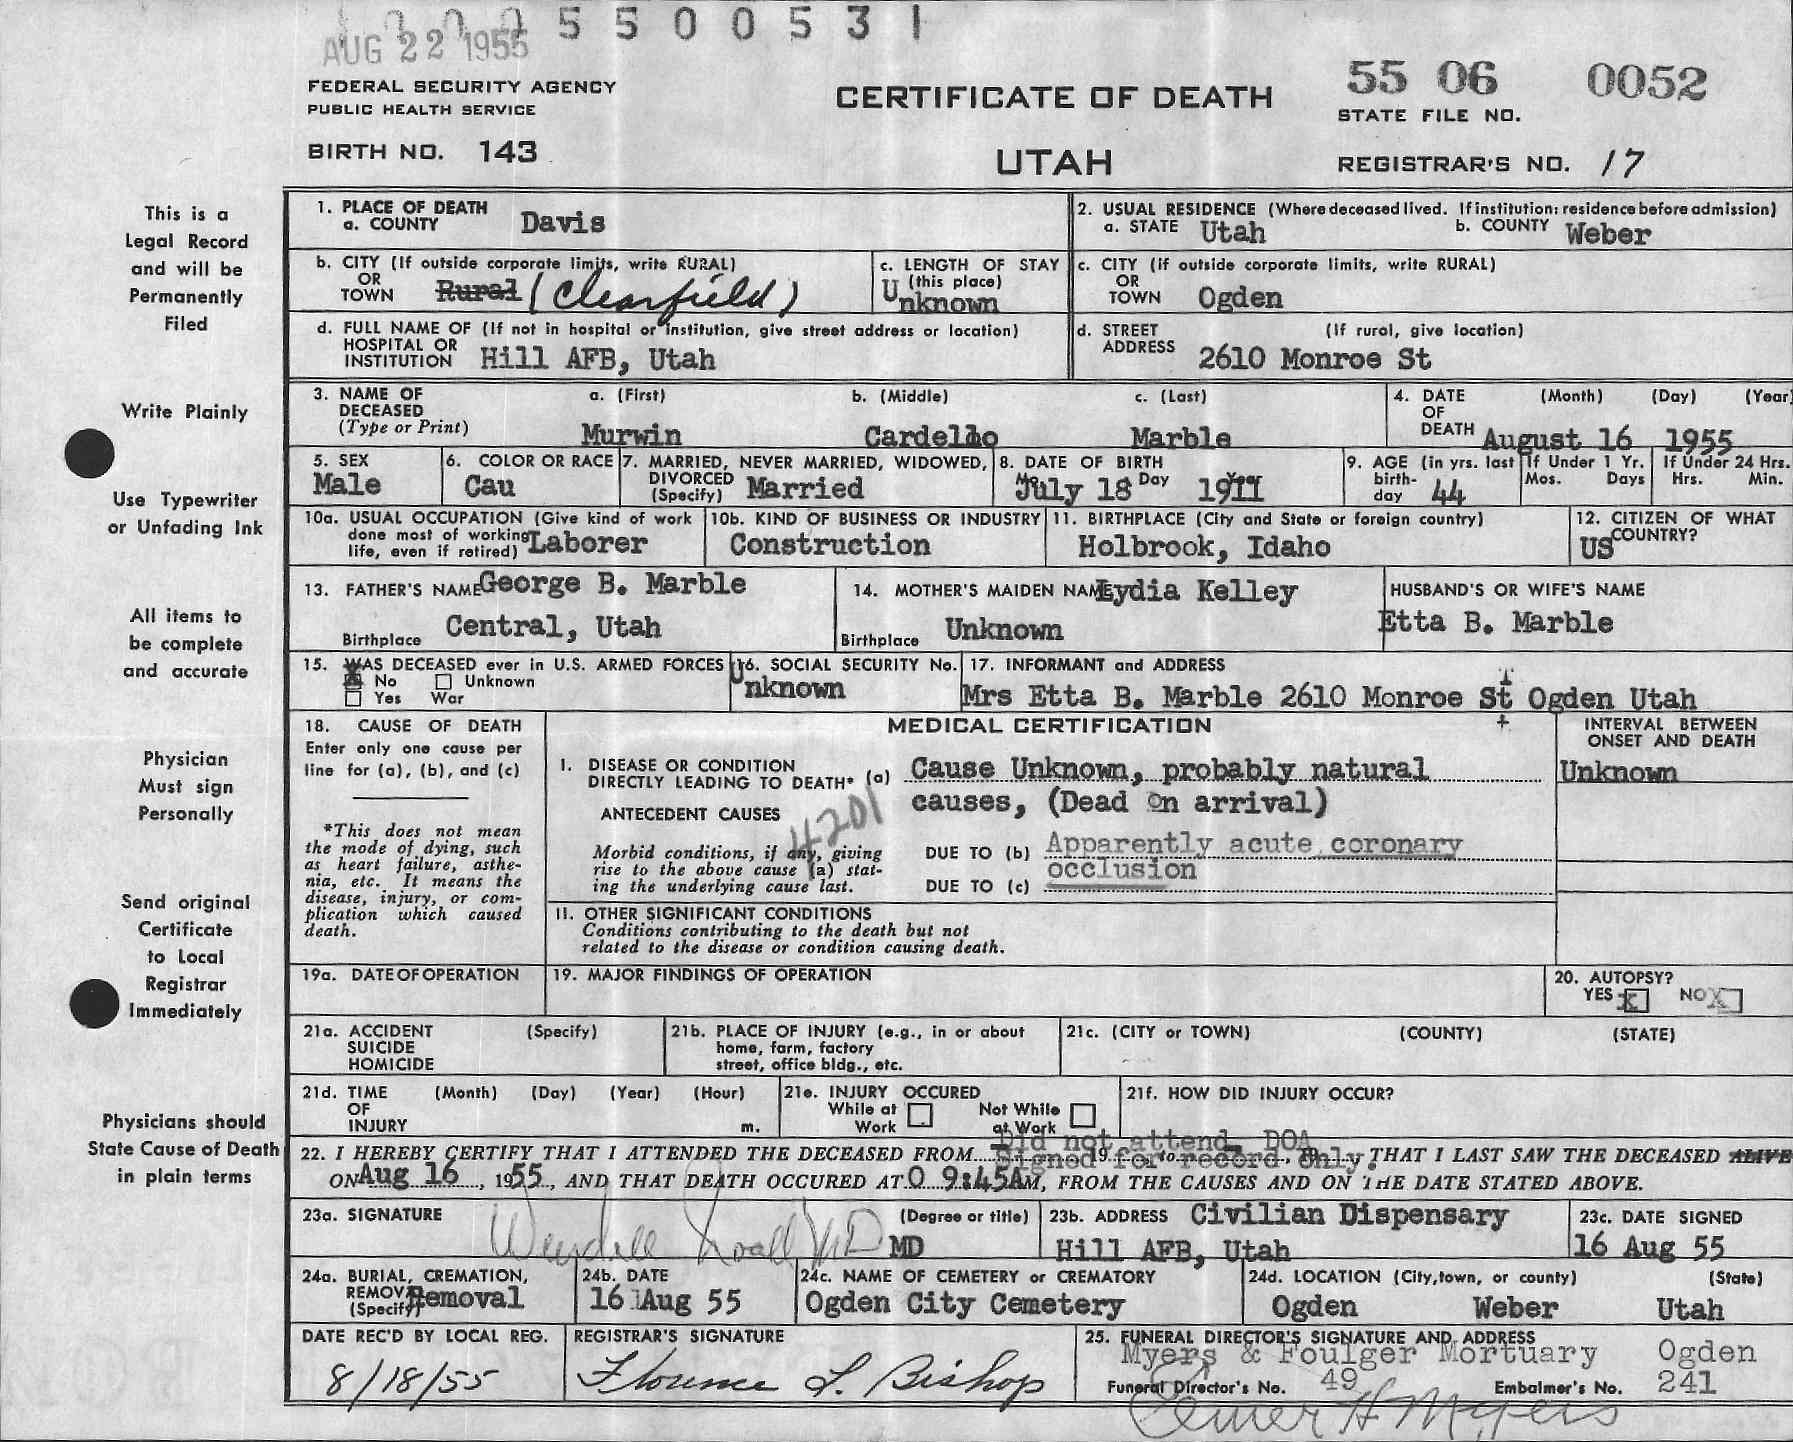 5 5 0 0 5 3 1
AUG 22 1955
FEDERAL SECURITY AGENCY
PUBLIC HEALTH SERVICE
BIRTH NO. 143
CERTIFICATE OF DEATH
UTAH
55 06 0052
STATE FILE NO.
REGISTRAR'S NO. 17
This is a
Legal Record
and will be
Permanently
Filed
Write Plainly
Use Typewriter
or Unfading Ink
All items to
be complete
and accurate
Physician
Must sign
Personally
Send original
Certificate
to Local
Registrar
Immediately
Physicians should
State Cause of Death
in plain terms
1. PLACE OF DEATH
a. COUNTY Davis
2. USUAL RESIDENCE (Where deceased lived. If institution: residence before admission)
a. STATE Utah b. COUNTY Weber
b. CITY (If outside corporate limits, write RURAL)
OR
TOWN Rural (Clearfield)
c. LENGTH OF STAY
(this place)
Unknown
c. CITY (if outside corporate limits, write RURAL)
OR
TOWN Ogden
d. FULL NAME OF (If not in hospital or institution, give street address or location)
HOSPITAL OR
INSTITUTION Hill AFB, Utah
d. STREET (If rural, give location)
ADDRESS 2610 Monroe St
3. NAME OF a. (First) b. (Middle) c. (Last)
DECEASED
(Type or Print) Murwin Cardello Marble
4. DATE (Month) (Day) (Year)
OF
DEATH August 16 1955
5. SEX
Male
6. COLOR OR RACE
Cau
7. MARRIED, NEVER MARRIED, WIDOWED,
DIVORCED
(Specify) Married
8. DATE OF BIRTH
July 18 Day 1911
9. AGE (in yrs. last
birth-
day 44
If Under 1 Yr.
Mos. Days
If Under 24 Hrs.
Hrs. Min.
10a. USUAL OCCUPATION (Give kind of work
done most of working
life, even if retired) Laborer
10b. KIND OF BUSINESS OR INDUSTRY
Construction
11. BIRTHPLACE (City and State or foreign country)
Holbrook, Idaho
12. CITIZEN OF WHAT
COUNTRY?
US
13. FATHER'S NAME George B. Marble
Birthplace Central, Utah
14. MOTHER'S MAIDEN NAME Lydia Kelley
Birthplace Unknown
HUSBAND'S OR WIFE'S NAME
Etta B. Marble
15. WAS DECEASED ever in U.S. ARMED FORCES
X No Unknown
Yes War
16. SOCIAL SECURITY No.
Unknown
17. INFORMANT and ADDRESS
Mrs Etta B. Marble 2610 Monroe St Ogden Utah
18. CAUSE OF DEATH
Enter only one cause per
line for (a), (b), and (c)
*This does not mean
the mode of dying, such
as heart failure, asthe-
nia, etc. It means the
disease, injury, or com-
plication which caused
death.
MEDICAL CERTIFICATION
INTERVAL BETWEEN
ONSET AND DEATH
Unknown
I. DISEASE OR CONDITION
DIRECTLY LEADING TO DEATH* (a) Cause Unknown, probably natural
causes, (Dead On arrival)
ANTECEDENT CAUSES
4201
Morbid conditions, if any, giving
rise to the above cause (a) stat-
ing the underlying cause last.
DUE TO (b) Apparently acute coronary
occlusion
DUE TO (c)
II. OTHER SIGNIFICANT CONDITIONS
Conditions contributing to the death but not
related to the disease or condition causing death.
19a. DATE OF OPERATION
19. MAJOR FINDINGS OF OPERATION
20. AUTOPSY?
YES X NO X
21a. ACCIDENT (Specify)
SUICIDE
HOMICIDE
21b. PLACE OF INJURY (e.g., in or about
home, farm, factory
street, office bldg., etc.
21c. (CITY or TOWN) (COUNTY) (STATE)
21d. TIME (Month) (Day) (Year) (Hour)
OF
INJURY m.
21e. INJURY OCCURED
While at Work Not While at Work
21f. HOW DID INJURY OCCUR?
Did not attend DOA
22. I HEREBY CERTIFY THAT I ATTENDED THE DECEASED FROM Signed for record Only. THAT I LAST SAW THE DECEASED ALIVE
ON Aug 16, 1955, AND THAT DEATH OCCURED AT 0 9:45AM, FROM THE CAUSES AND ON THE DATE STATED ABOVE.
23a. SIGNATURE (Degree or title)
MD
23b. ADDRESS Civilian Dispensary
Hill AFB, Utah
23c. DATE SIGNED
16 Aug 55
24a. BURIAL, CREMATION,
REMOVAL
(Specify) Removal
24b. DATE
16 Aug 55
24c. NAME OF CEMETERY or CREMATORY
Ogden City Cemetery
24d. LOCATION (City, town, or county) (State)
Ogden Weber Utah
DATE REC'D BY LOCAL REG.
8/18/55
REGISTRAR'S SIGNATURE
Florence L. Bishop
25. FUNERAL DIRECTOR'S SIGNATURE AND ADDRESS
Myers & Foulger Mortuary Ogden
Funeral Director's No. 49 Embalmer's No. 241
Elmer H Myers